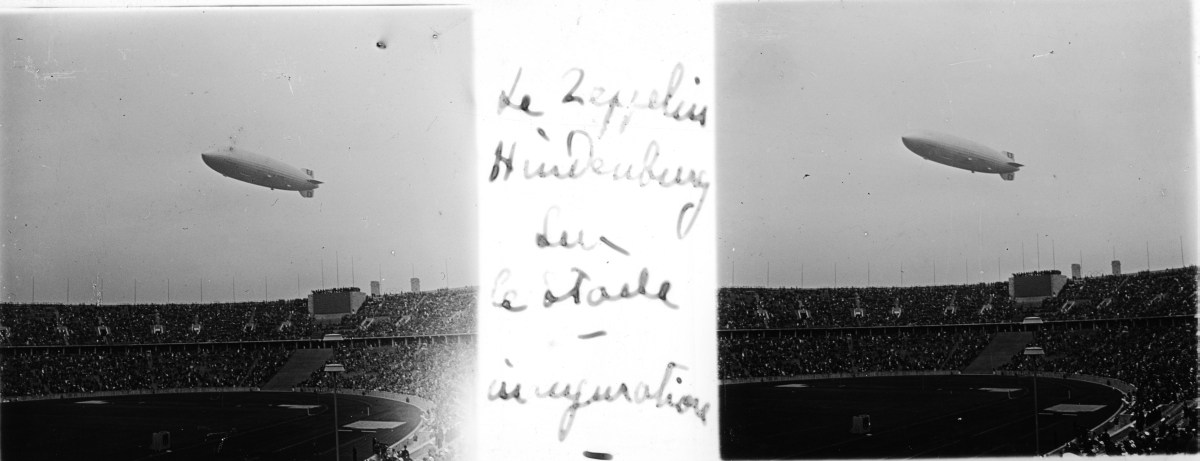 Le Zeppelin
Hindenburg
sur
le stade
inauguration